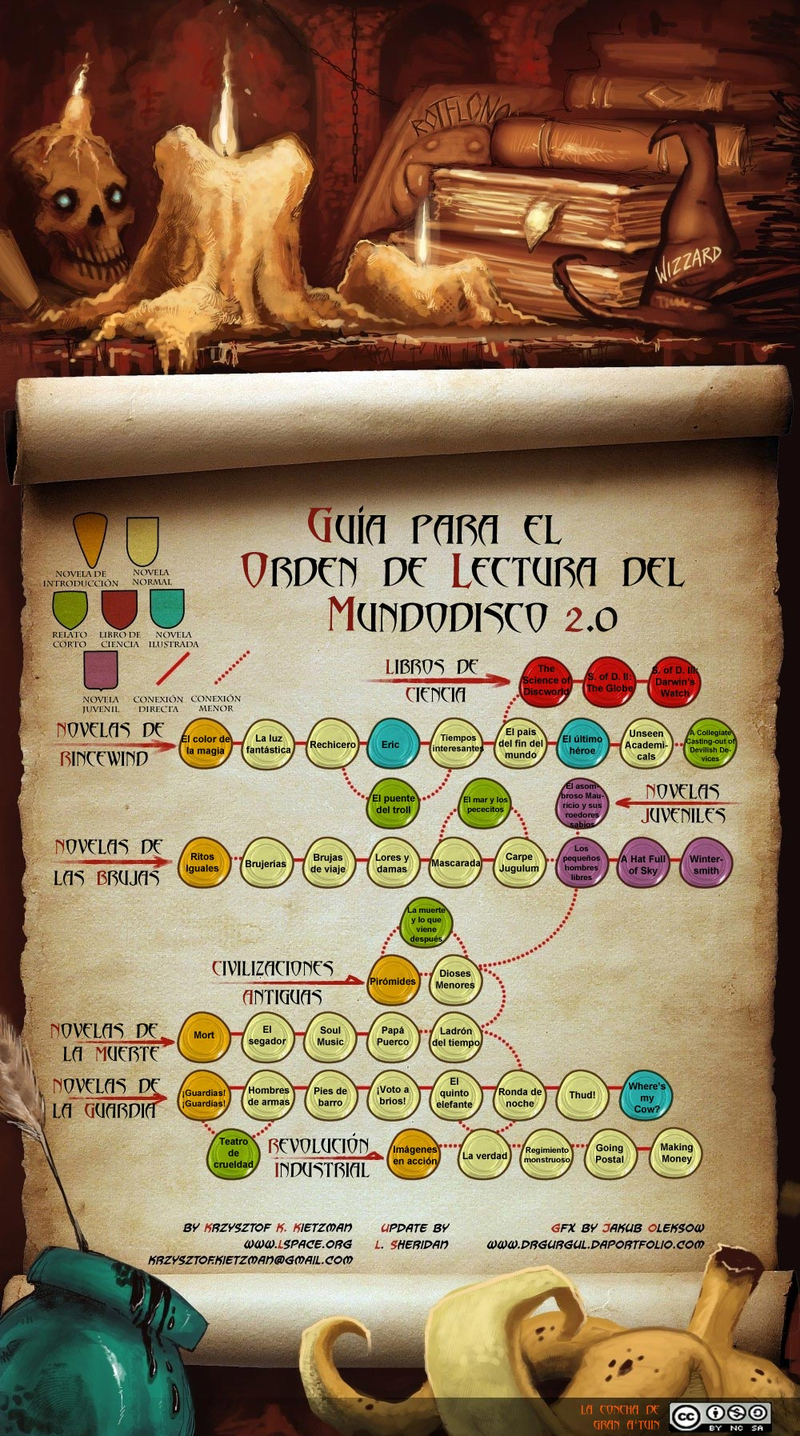 ROTFLONO
WIZZARD
GUÍA PARA EL
ORDEN DE LECTURA DEL
MUNDODISCO 2.0
NOVELA DE
INTRODUCCIÓN
NOVELA
NORMAL
RELATO
CORTO
LIBRO DE
CIENCIA
NOVELA
ILUSTRADA
NOVELA
JUVENIL
CONEXIÓN
DIRECTA
CONEXIÓN
MENOR
LIBROS DE
CIENCIA
The
Science of
Discworld
S. of D. II:
The Globe
S. of D. III:
Darwin's
Watch
NOVELAS DE
RINCEWIND
El color de
la magia
La luz
fantástica
Rechicero
Eric
Tiempos
interesantes
El país
del fin del
mundo
El último
héroe
Unseen
Academi-
cals
A Collegiate
Casting-out of
Devilish De-
vices
El puente
del troll
El mar y los
pececitos
El asom-
broso Mau-
ricio y sus
roedores
sabios
NOVELAS
JUVENILES
NOVELAS DE
LAS BRUJAS
Ritos
Iguales
Brujerías
Brujas
de viaje
Lores y
damas
Mascarada
Carpe
Jugulum
Los
pequeños
hombres
libres
A Hat Full
of Sky
Winter-
smith
La muerte
y lo que
viene
después
CIVILIZACIONES
ANTIGUAS
Pirómides
Dioses
Menores
NOVELAS DE
LA MUERTE
Mort
El
segador
Soul
Music
Papá
Puerco
Ladrón
del tiempo
NOVELAS DE
LA GUARDIA
¡Guardias!
¡Guardias!
Hombres
de armas
Pies de
barro
¡Voto a
bríos!
El
quinto
elefante
Ronda de
noche
Thud!
Where's
my
Cow?
Teatro
de
crueldad
REVOLUCIÓN
INDUSTRIAL
Imágenes
en acción
La verdad
Regimiento
monstruoso
Going
Postal
Making
Money
BY KRZYSZTOF K. KIETZMAN
WWW.LSPACE.ORG
KRZYSZTOF.KIETZMAN@GMAIL.COM
UPDATE BY
L. SHERIDAN
GFX BY JAKUB OLEKSOW
WWW.DRGURGUL.DAPORTFOLIO.COM
LA CONCHA DE
GRAN A'TUIN
cc
BY NC SA